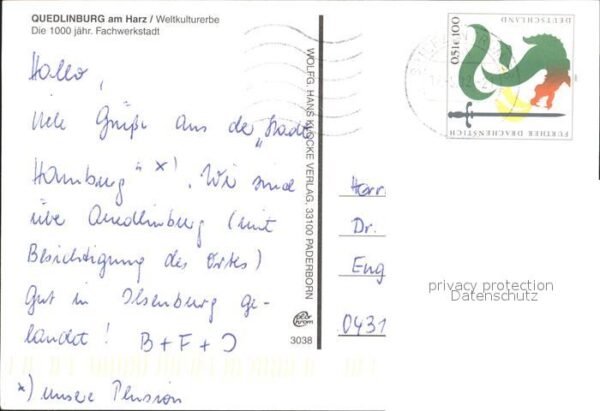 QUEDLINBURG am Harz / Weltkulturerbe
Die 1000 jähr. Fachwerkstadt
Hallo,
viele Grüße aus der „Stadt
Hamburg" *). Wir sind
über Quedlinburg (mit
Besichtigung des Ortes)
gut in Ilsenburg ge-
landet! B + F + J
*) unsere Pension
WOLFG. HANS KLOCKE VERLAG, 33100 PADERBORN
3038
DEUTSCHLAND
0,51€ 100
FURTHER DRACHENSTICH
Herr
Dr.
Eng
0431
privacy protection
Datenschutz